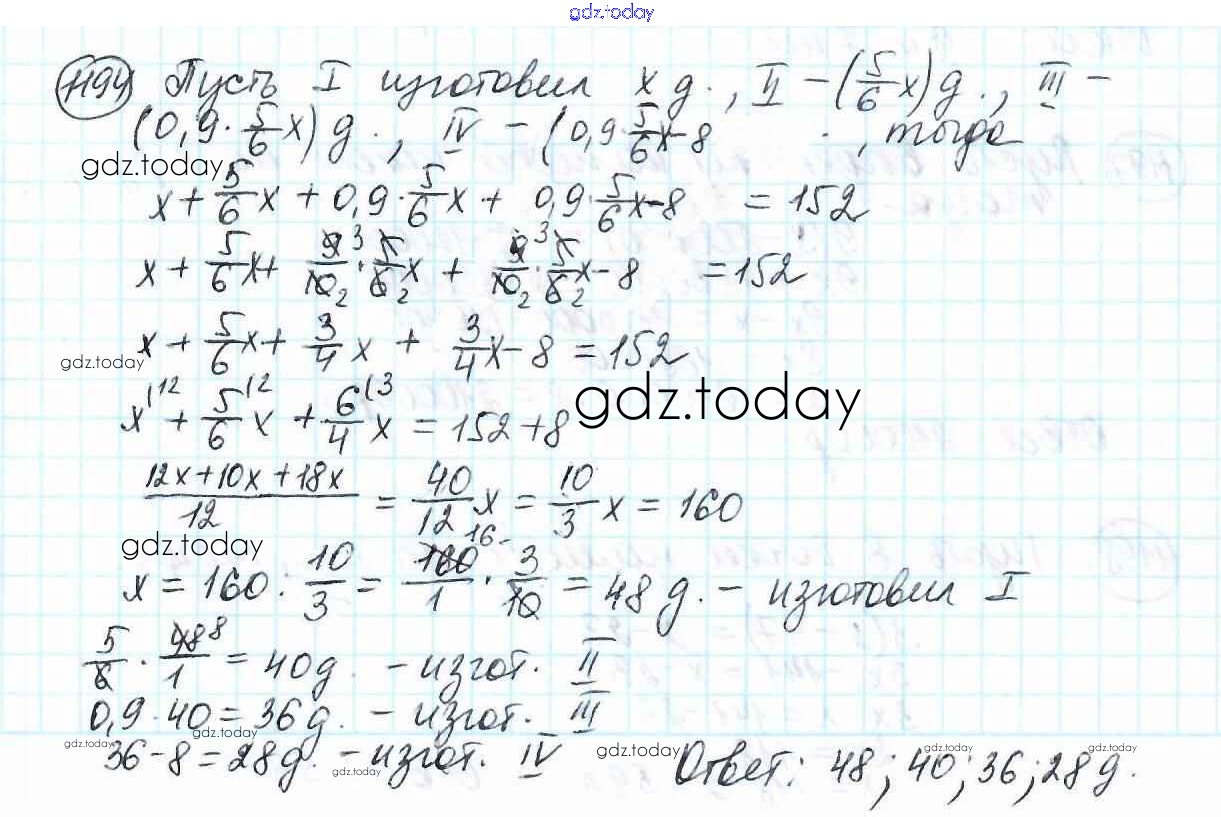 gdz.today
1194 Пусть I изготовил x д., II – (5/6 x) д., III –
(0,9 · 5/6 x) д., IV – (0,9 · 5/6 x – 8 , тогда
gdz.today
x + 5/6 x + 0,9 · 5/6 x + 0,9 · 5/6 x – 8 = 152
x + 5/6 x + 9³/10₂ · 5/6₂ x + 9³/10₂ · 5/6₂ x – 8 = 152
x + 5/6 x + 3/4 x + 3/4 x – 8 = 152
gdz.today
x⁽¹² + 5/6⁽² x + 6/4⁽³ x = 152 + 8
gdz.today
12x + 10x + 18x / 12 = 40/12 x = 10/3 x = 160
gdz.today
x = 160 : 10/3 = 160¹⁶/1 · 3/10 = 48 д. – изготовил I
5/6 · 48⁸/1 = 40 д. – изгот. II
0,9 · 40 = 36 д. – изгот. III
gdz.today gdz.today gdz.today gdz.today gdz.today
36 – 8 = 28 д. – изгот. IV Ответ: 48; 40; 36; 28 д.
gdz.today